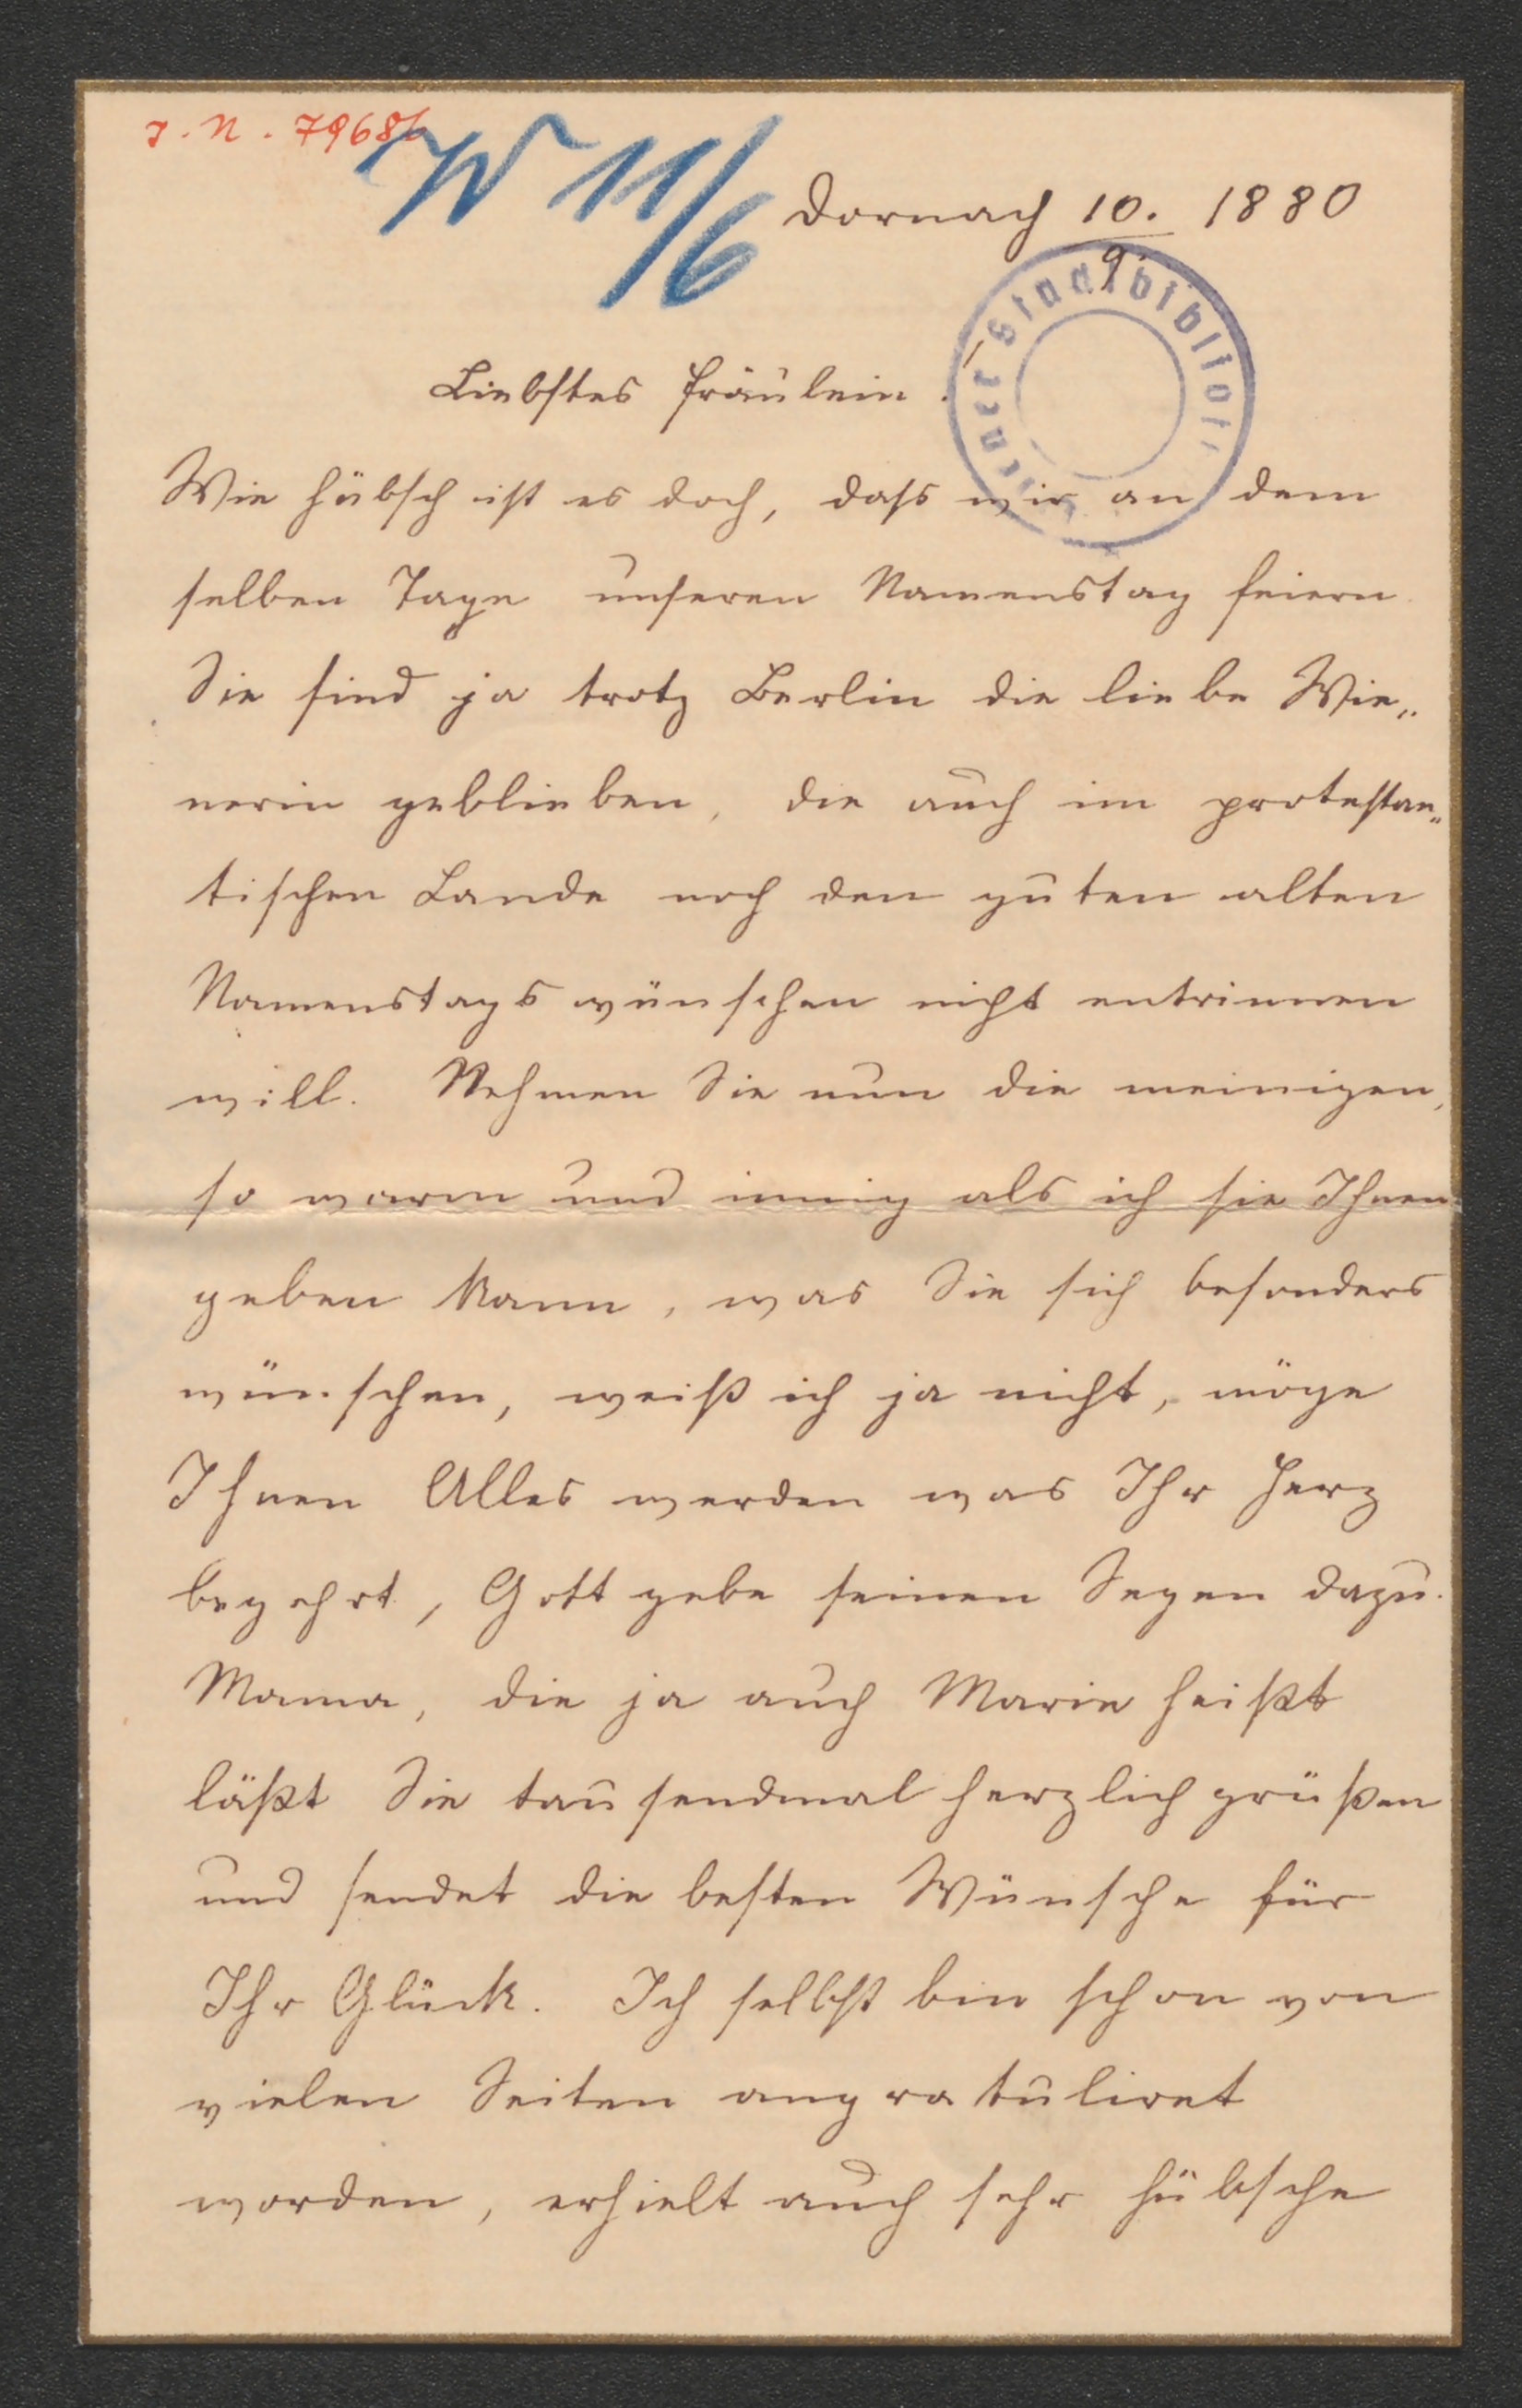 J. N. 79686
W 11/6
Dornach 10. 1880
9.
Wiener Stadtbibliothek
Liebstes Fräulein!
Wie hübsch ist es doch, dass wir an dem
selben Tage unseren Namenstag feiern
Sie sind ja trotz Berlin die liebe Wie„
nerin geblieben, die auch im protestan„
tischen Lande noch den guten alten
Namenstags wünschen nicht entrinnen
will. Nehmen Sie nun die meinigen,
so warm und innig als ich sie Ihnen
geben kann, was Sie sich besonders
wünschen, weiß ich ja nicht, möge
Ihnen Alles werden was Ihr Herz
begehrt, Gott gebe seinen Segen dazu.
Mama, die ja auch Marie heißt
läßt Sie tausendmal herzlich grüßen
und sendet die besten Wünsche für
Ihr Glück. Ich selbst bin schon von
vielen Seiten angratuliret
worden, erhielt auch sehr hübsche